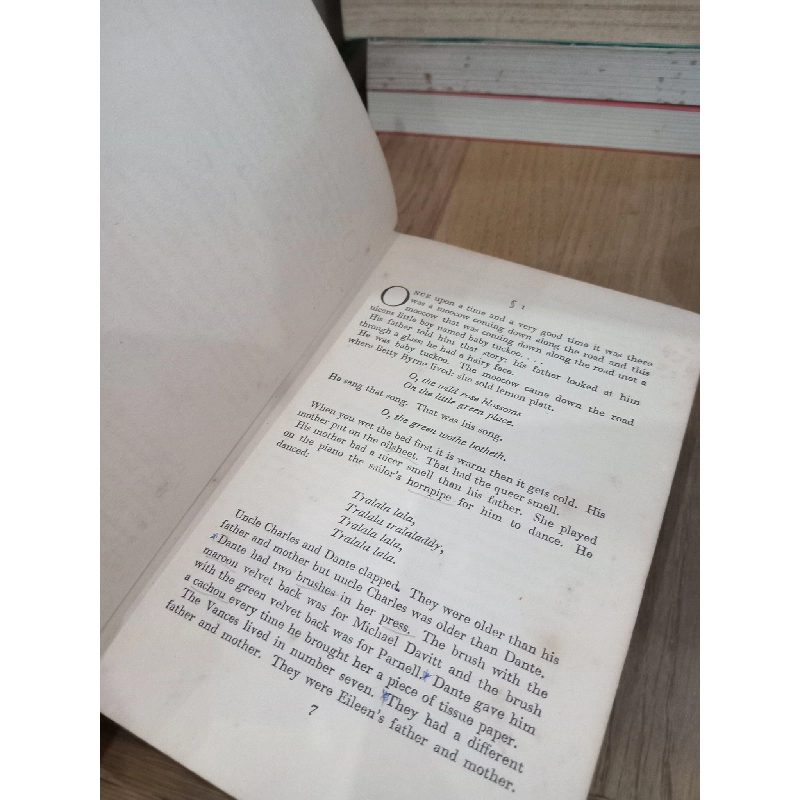 § 1
ONCE upon a time and a very good time it was there
was a moocow coming down along the road and this
moocow that was coming down along the road met a
nicens little boy named baby tuckoo. . . .
His father told him that story: his father looked at him
through a glass: he had a hairy face.
He was baby tuckoo. The moocow came down the road
where Betty Byrne lived: she sold lemon platt.
O, the wild rose blossoms
On the little green place.
He sang that song. That was his song.
O, the green wothe botheth.
When you wet the bed first it is warm then it gets cold. His
mother put on the oilsheet. That had the queer smell.
His mother had a nicer smell than his father. She played
on the piano the sailor's hornpipe for him to dance. He
danced:
Tralala lala,
Tralala tralaladdy,
Tralala lala,
Tralala lala.
Uncle Charles and Dante clapped. They were older than his
father and mother but uncle Charles was older than Dante.
Dante had two brushes in her press. The brush with the
maroon velvet back was for Michael Davitt and the brush
with the green velvet back was for Parnell. Dante gave him
a cachou every time he brought her a piece of tissue paper.
The Vances lived in number seven. They had a different
father and mother. They were Eileen's father and mother.
7